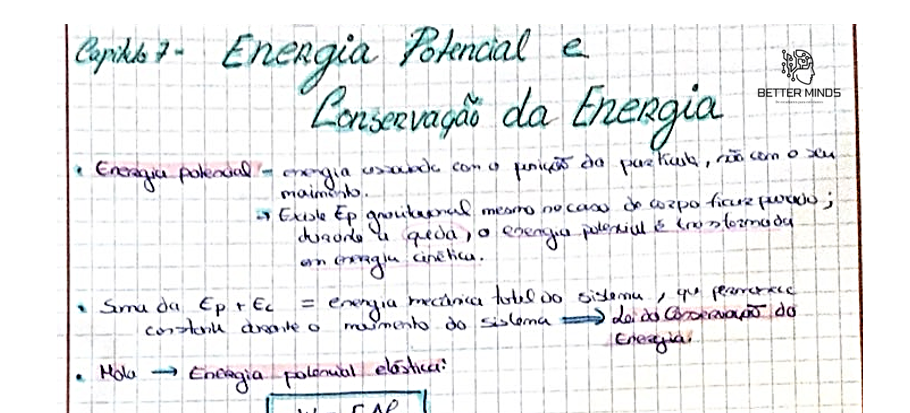 Capítulo 7 - Energia Potencial e
Conservação da Energia
BETTER MINDS
• Energia potencial - energia associada com a posição da partícula, não com o seu
movimento.
→ Existe Ep gravitacional mesmo no caso do corpo ficar parado;
durante a queda, a energia potencial é transformada
em energia cinética.
• Soma da Ep + Ec = energia mecânica total do sistema, que permanece
constante durante o movimento do sistema ⟹ Lei da Conservação da
Energia.
• Mola → Energia potencial elástica: